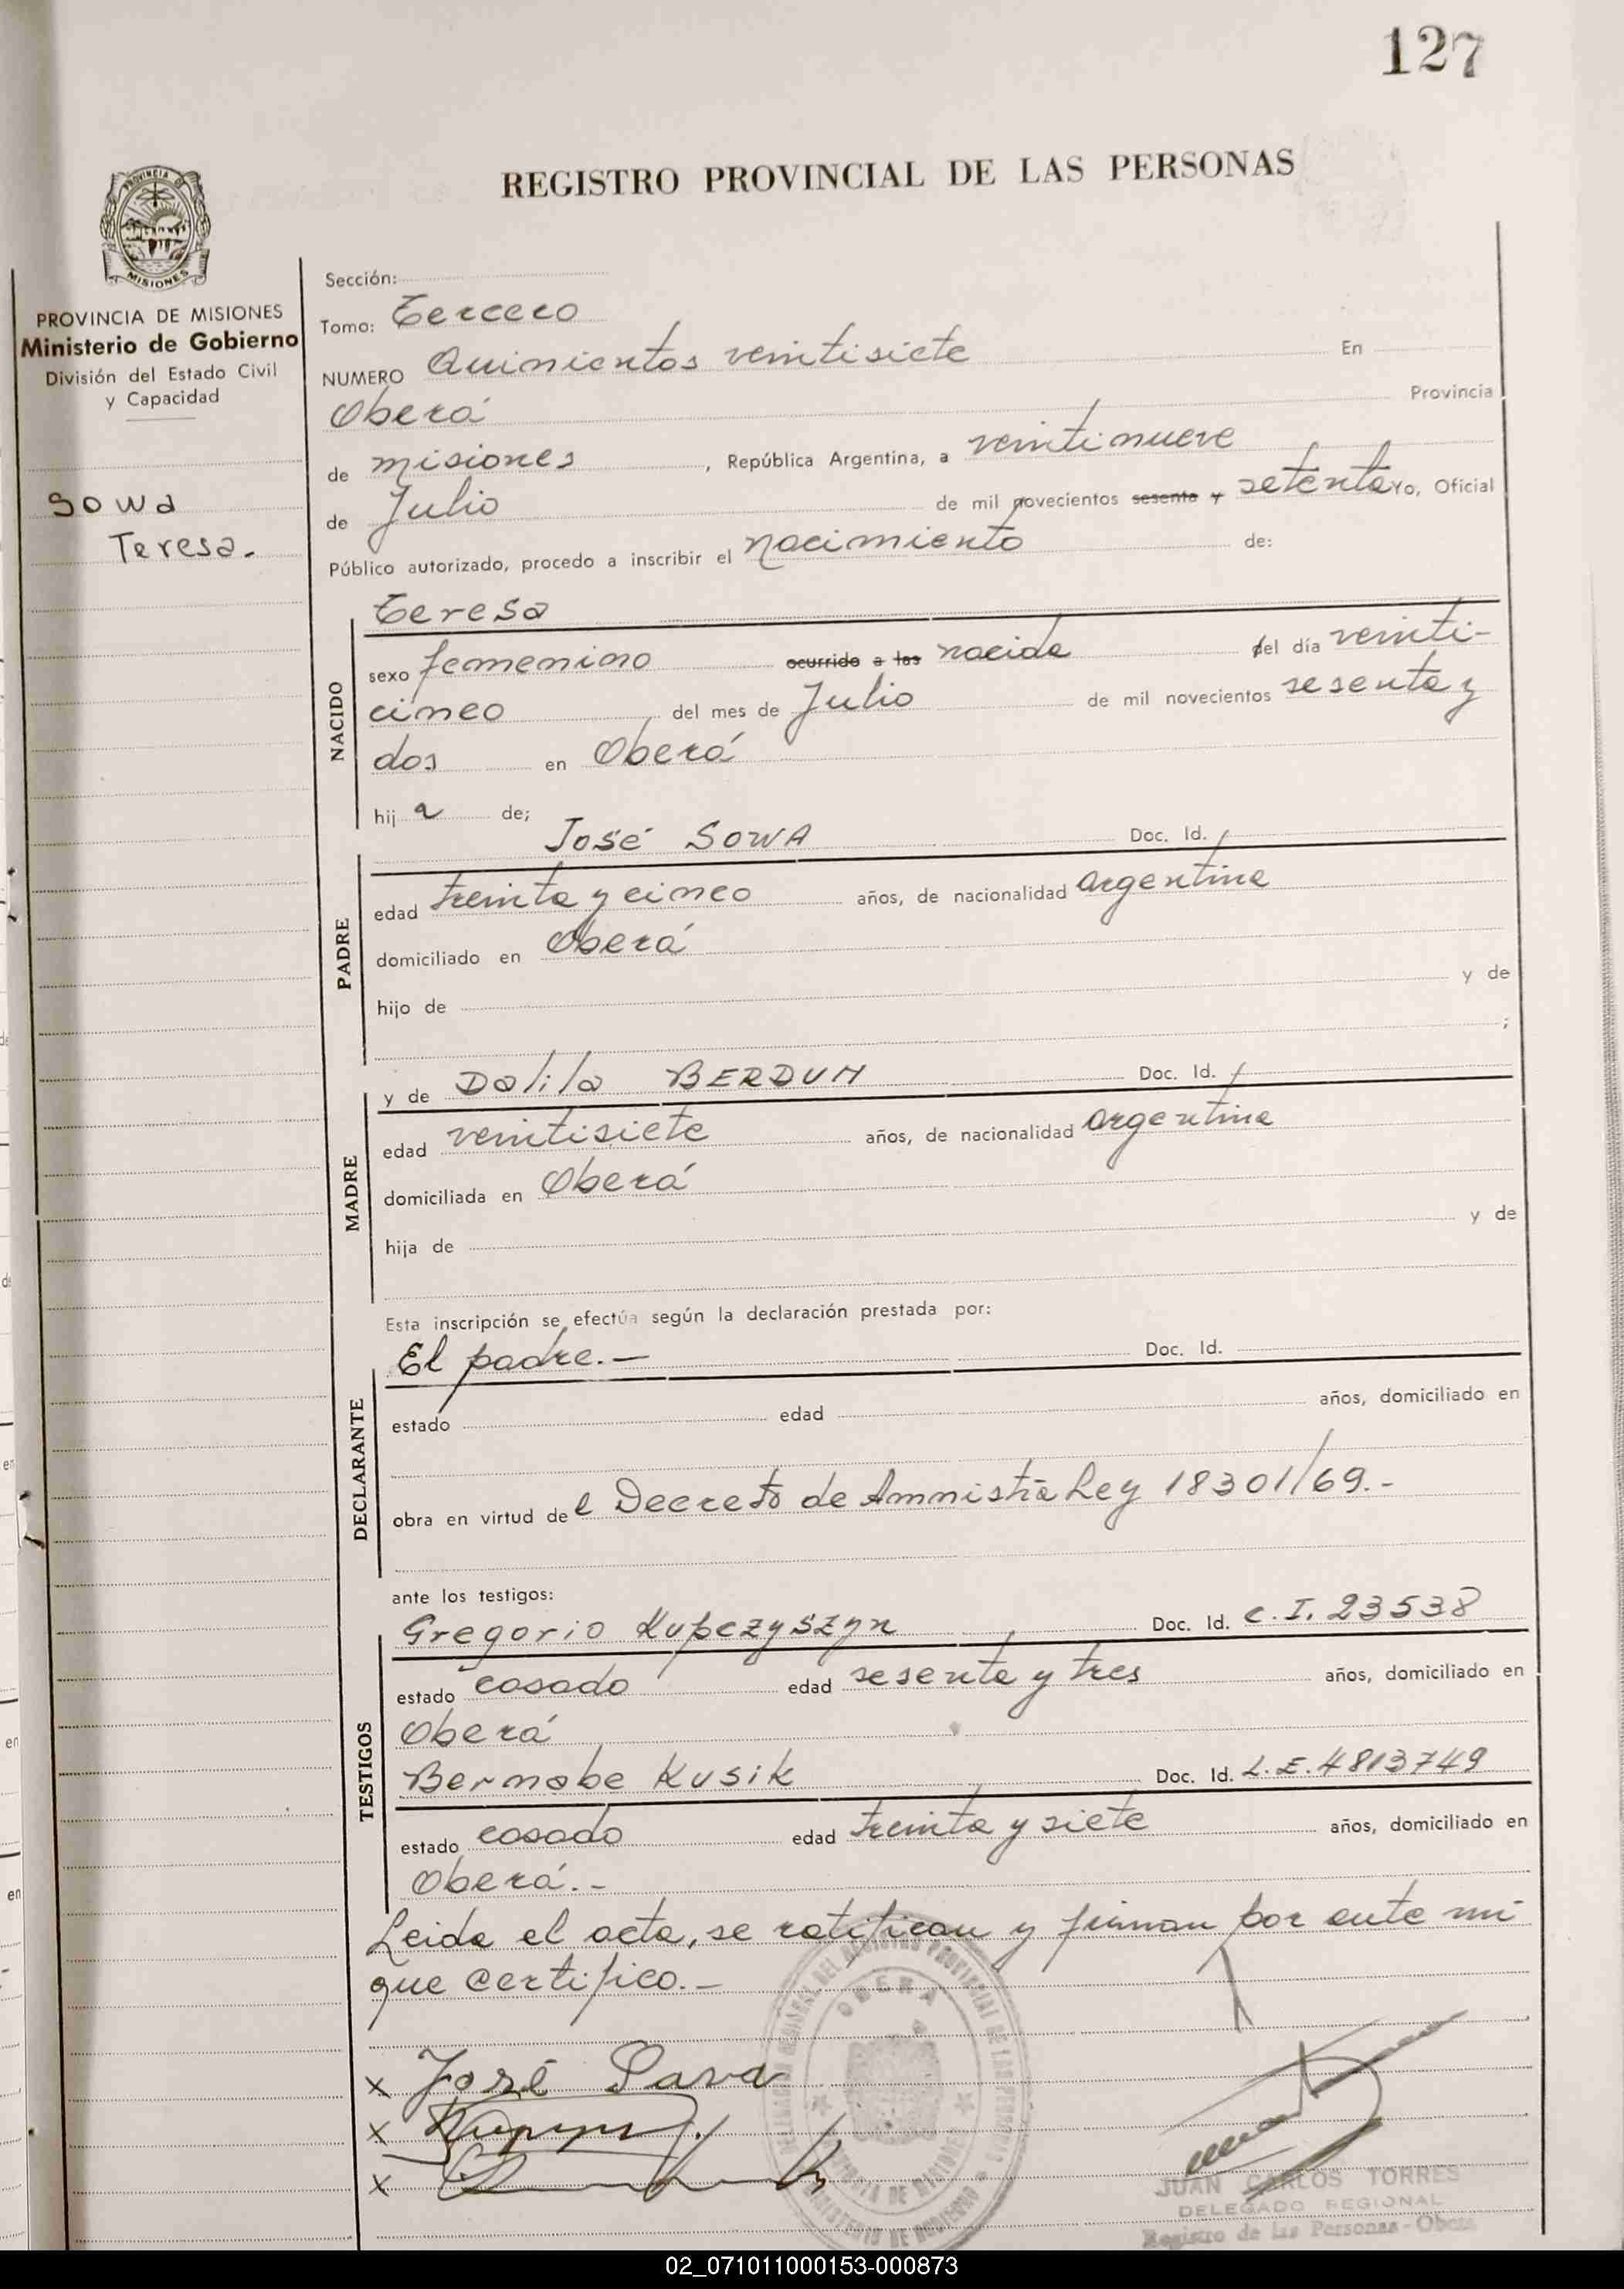 127
REGISTRO PROVINCIAL DE LAS PERSONAS
PROVINCIA DE MISIONES
Ministerio de Gobierno
División del Estado Civil
y Capacidad
Sowa
Teresa.
Sección:
Tomo: Tercero
NUMERO Quinientos veintisiete En
Oberá Provincia
de misiones, República Argentina, a veintinueve
de Julio de mil novecientos sesenta y setenta Yo, Oficial
Público autorizado, procedo a inscribir el nacimiento de:
NACIDO
Teresa
sexo femenino ocurrido a las nacida del día veinti-
cinco del mes de Julio de mil novecientos sesenta y
dos en Oberá
hija de;
PADRE
José SOWA Doc. Id.
edad treinta y cinco años, de nacionalidad argentina
domiciliado en Oberá
hijo de y de
;
MADRE
y de Dalila BERDUN Doc. Id.
edad veintisiete años, de nacionalidad argentina
domiciliada en Oberá
hija de y de
Esta inscripción se efectúa según la declaración prestada por:
DECLARANTE
El padre.- Doc. Id.
estado edad años, domiciliado en
obra en virtud del Decreto de Amnistía Ley 18301/69.-
ante los testigos:
TESTIGOS
Gregorio Kupczyszyn Doc. Id. C.I. 23538
estado casado edad sesenta y tres años, domiciliado en
Oberá
Bernabe Kusik Doc. Id. L.E. 4813749
estado casado edad treinta y siete años, domiciliado en
Oberá.-
Leida el acta, se ratifican y firman por ante mi
que certifico.-
x José Sava
x
x
OBERA
JUAN CARLOS TORRES
DELEGADO REGIONAL
Registro de las Personas - Oberá
02_071011000153-000873